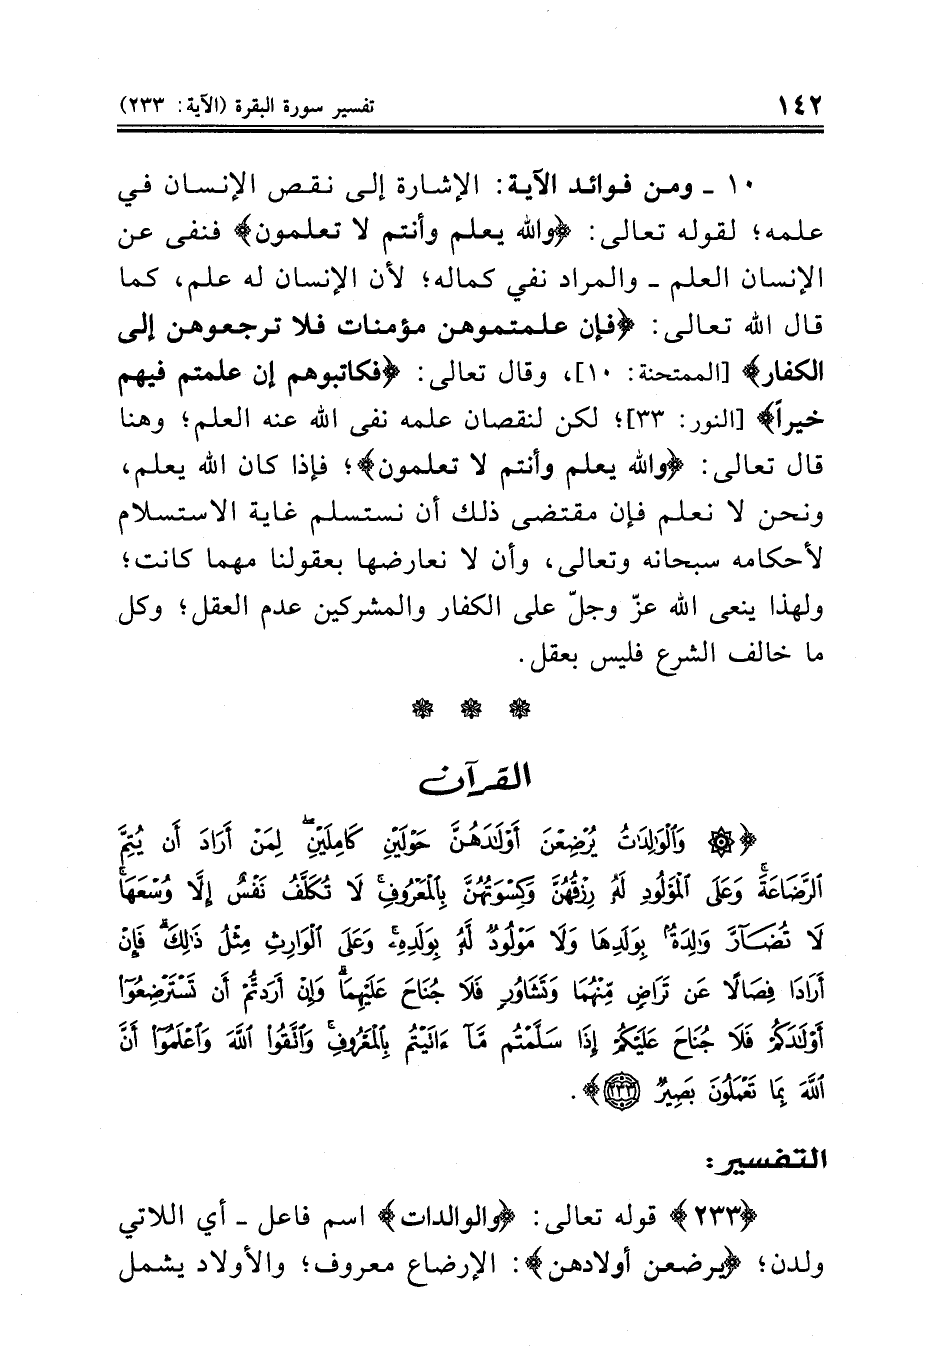 ١٤٢
تفسير سورة البقرة (الآية: ٢٣٣)
١٠ ـ ومن فوائد الآية: الإشارة إلى نقص الإنسان في
علمه؛ لقوله تعالى: ﴿والله يعلم وأنتم لا تعلمون﴾ فنفى عن
الإنسان العلم ـ والمراد نفي كماله؛ لأن الإنسان له علم، كما
قال الله تعالى: ﴿فإن علمتموهن مؤمنات فلا ترجعوهن إلى
الكفار﴾ [الممتحنة: ١٠]، وقال تعالى: ﴿فكاتبوهم إن علمتم فيهم
خيراً﴾ [النور: ٣٣]؛ لكن لنقصان علمه نفى الله عنه العلم؛ وهنا
قال تعالى: ﴿والله يعلم وأنتم لا تعلمون﴾؛ فإذا كان الله يعلم،
ونحن لا نعلم فإن مقتضى ذلك أن نستسلم غاية الاستسلام
لأحكامه سبحانه وتعالى، وأن لا نعارضها بعقولنا مهما كانت؛
ولهذا ينعى الله عزّ وجلّ على الكفار والمشركين عدم العقل؛ وكل
ما خالف الشرع فليس بعقل.
* * *
القرآن
﴿۞ وَٱلْوَٰلِدَٰتُ يُرْضِعْنَ أَوْلَٰدَهُنَّ حَوْلَيْنِ كَامِلَيْنِ ۖ لِمَنْ أَرَادَ أَن يُتِمَّ
ٱلرَّضَاعَةَ ۚ وَعَلَى ٱلْمَوْلُودِ لَهُۥ رِزْقُهُنَّ وَكِسْوَتُهُنَّ بِٱلْمَعْرُوفِ ۚ لَا تُكَلَّفُ نَفْسٌ إِلَّا وُسْعَهَا ۚ
لَا تُضَآرَّ وَٰلِدَةٌۢ بِوَلَدِهَا وَلَا مَوْلُودٌ لَّهُۥ بِوَلَدِهِۦ ۚ وَعَلَى ٱلْوَارِثِ مِثْلُ ذَٰلِكَ ۗ فَإِنْ
أَرَادَا فِصَالًا عَن تَرَاضٍ مِّنْهُمَا وَتَشَاوُرٍ فَلَا جُنَاحَ عَلَيْهِمَا ۗ وَإِنْ أَرَدتُّمْ أَن تَسْتَرْضِعُوٓا۟
أَوْلَٰدَكُمْ فَلَا جُنَاحَ عَلَيْكُمْ إِذَا سَلَّمْتُم مَّآ ءَاتَيْتُم بِٱلْمَعْرُوفِ ۗ وَٱتَّقُوا۟ ٱللَّهَ وَٱعْلَمُوٓا۟ أَنَّ
ٱللَّهَ بِمَا تَعْمَلُونَ بَصِيرٌ ٢٣٣﴾.
التفسير:
﴿٢٣٣﴾ قوله تعالى: ﴿والوالدات﴾ اسم فاعل ـ أي اللاتي
ولدن؛ ﴿يرضعن أولادهن﴾: الإرضاع معروف؛ والأولاد يشمل